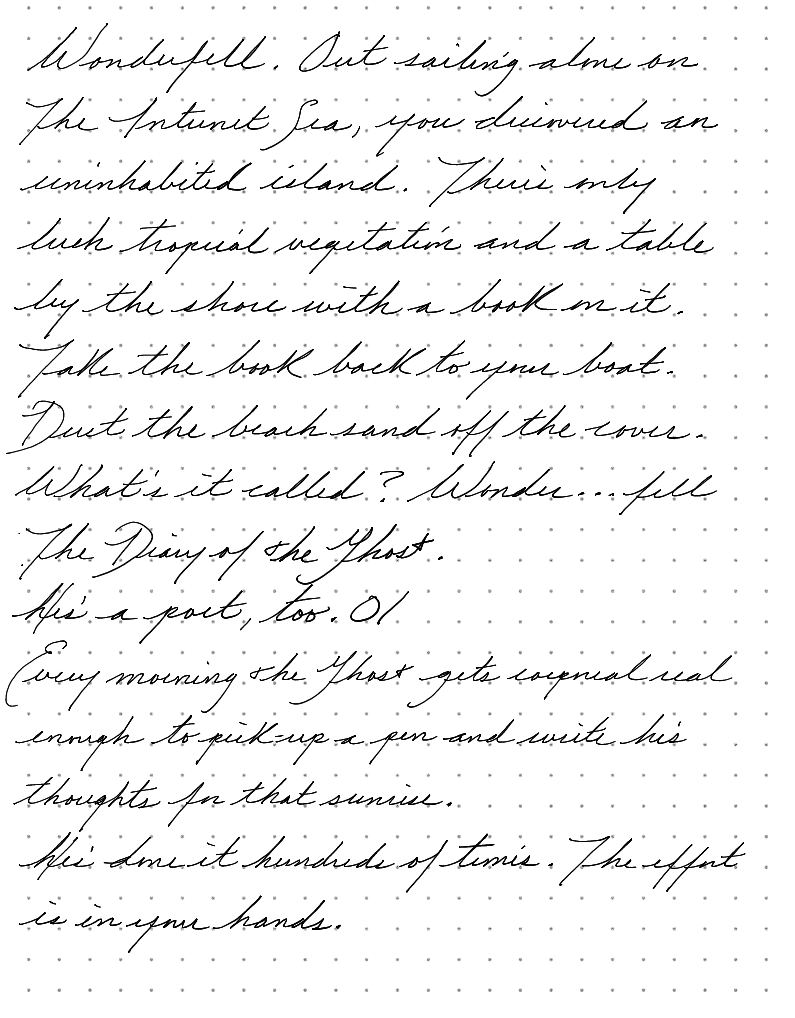 Wonderfell. Out sailing alone on
The Internet Sea, you discovered an
uninhabited island. There's only
lush tropical vegetation and a table
by the shore with a book on it.
Take the book back to your boat.
Dust the beach sand off the cover.
What's it called? Wonder...fell
The Diary of the Ghost.
He's a poet, too. 01
Every morning the Ghost gets corporeal real
enough to pick-up a pen and write his
thoughts for that sunrise.
He's done it hundreds of times. The effort
is in your hands.